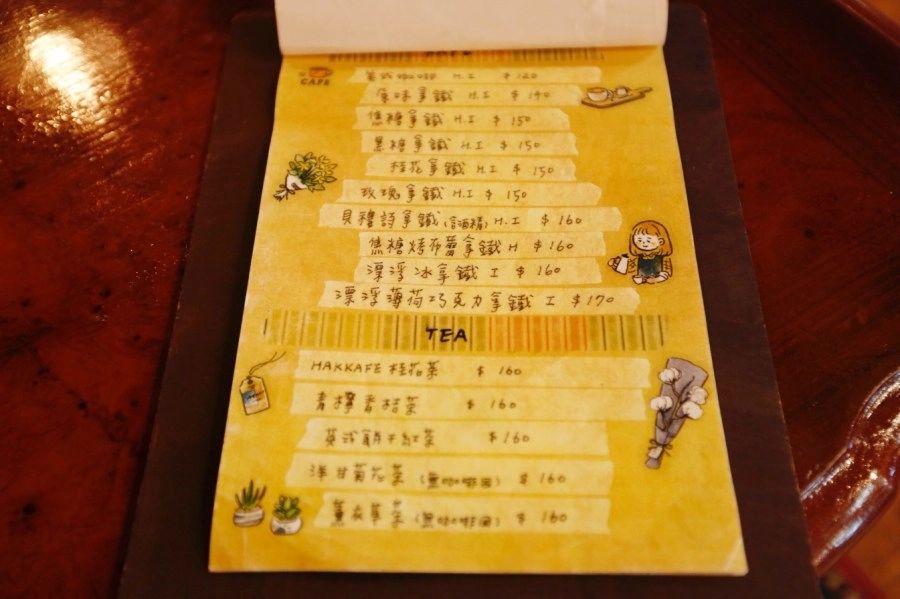 CAFE
美式咖啡 H.I $120
原味拿鐵 H.I $140
焦糖拿鐵 H.I $150
黑糖拿鐵 H.I $150
桂花拿鐵 H.I $150
玫瑰拿鐵 H.I $150
貝禮詩拿鐵(含酒精) H.I $160
焦糖烤布蕾拿鐵 H $160
漂浮冰拿鐵 I $160
漂浮薄荷巧克力拿鐵 I $170
TEA
HAKKAFE 桂花茶 $160
青檸香桔茶 $160
英式餅干紅茶 $160
洋甘菊花茶 (無咖啡因) $160
薰衣草茶 (無咖啡因) $160